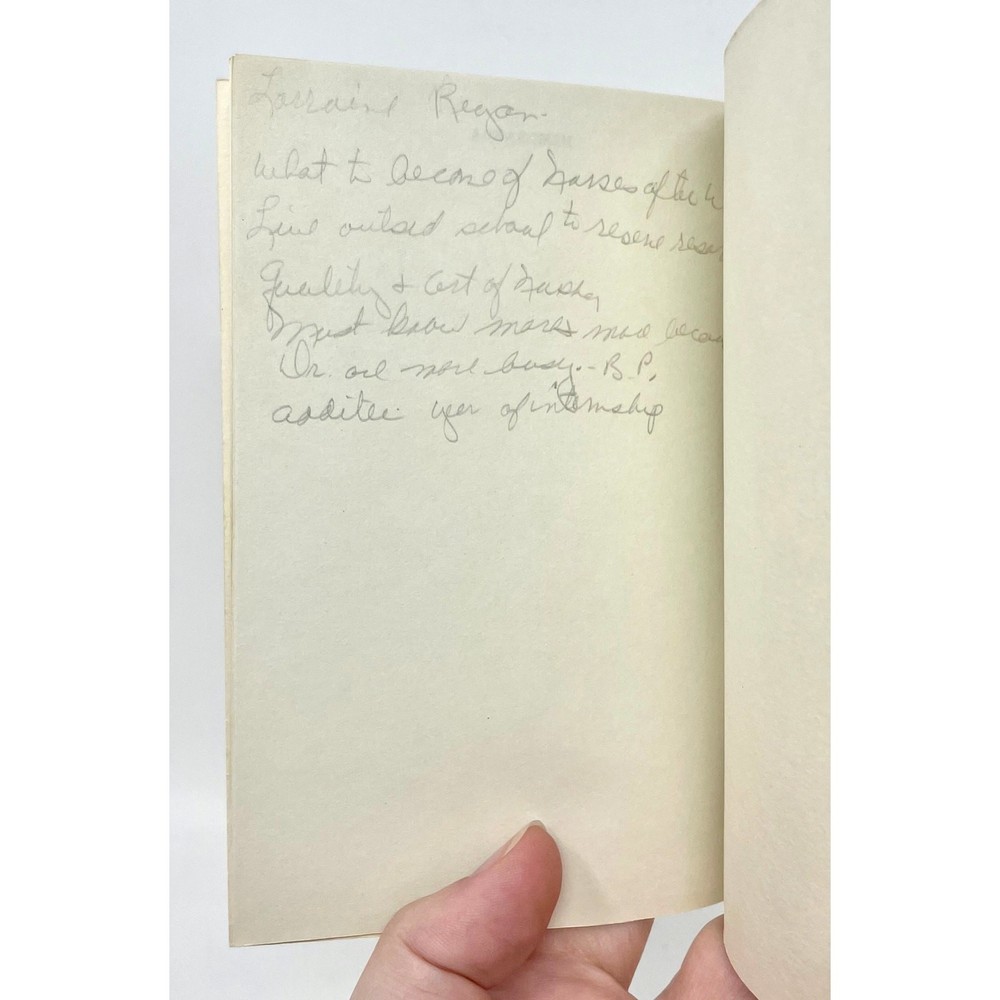 Lorraine Regan
What to become of Nurses after
Live outsid school to
Quality & Cost of
Must know more more
Dr. are more busy -- B.P.
additee year of internship